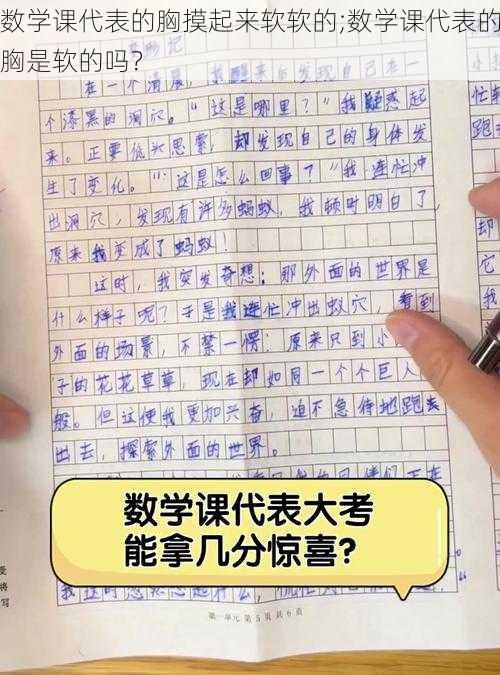 数学课代表的胸摸起来软软的;数学课代表的
胸是软的吗?
变形记
在一个清晨，我醒来发现自己在一
个漆黑的洞穴。“这是哪里？”我疑惑起
来。正要低头思索，却发现自己的身体发
生了变化。“这是怎么回事？”我连忙冲
出洞穴，发现有许多蚂蚁，我顿时明白了，
原来我变成了蚂蚁！
这时，我突发奇想：那外面的世界是
什么样子呢？于是我连忙冲出蚁穴，看到
外面的场景，不禁一愣：原来只到小
子的花花草草，现在却如同一个个巨人
般。但这使我更加兴奋，迫不急待地跑去
出去，探索外面的世界。
数学课代表大考
能拿几分惊喜?
第一单元 第 5 页 共 6 页
忙
跑
却
它
我